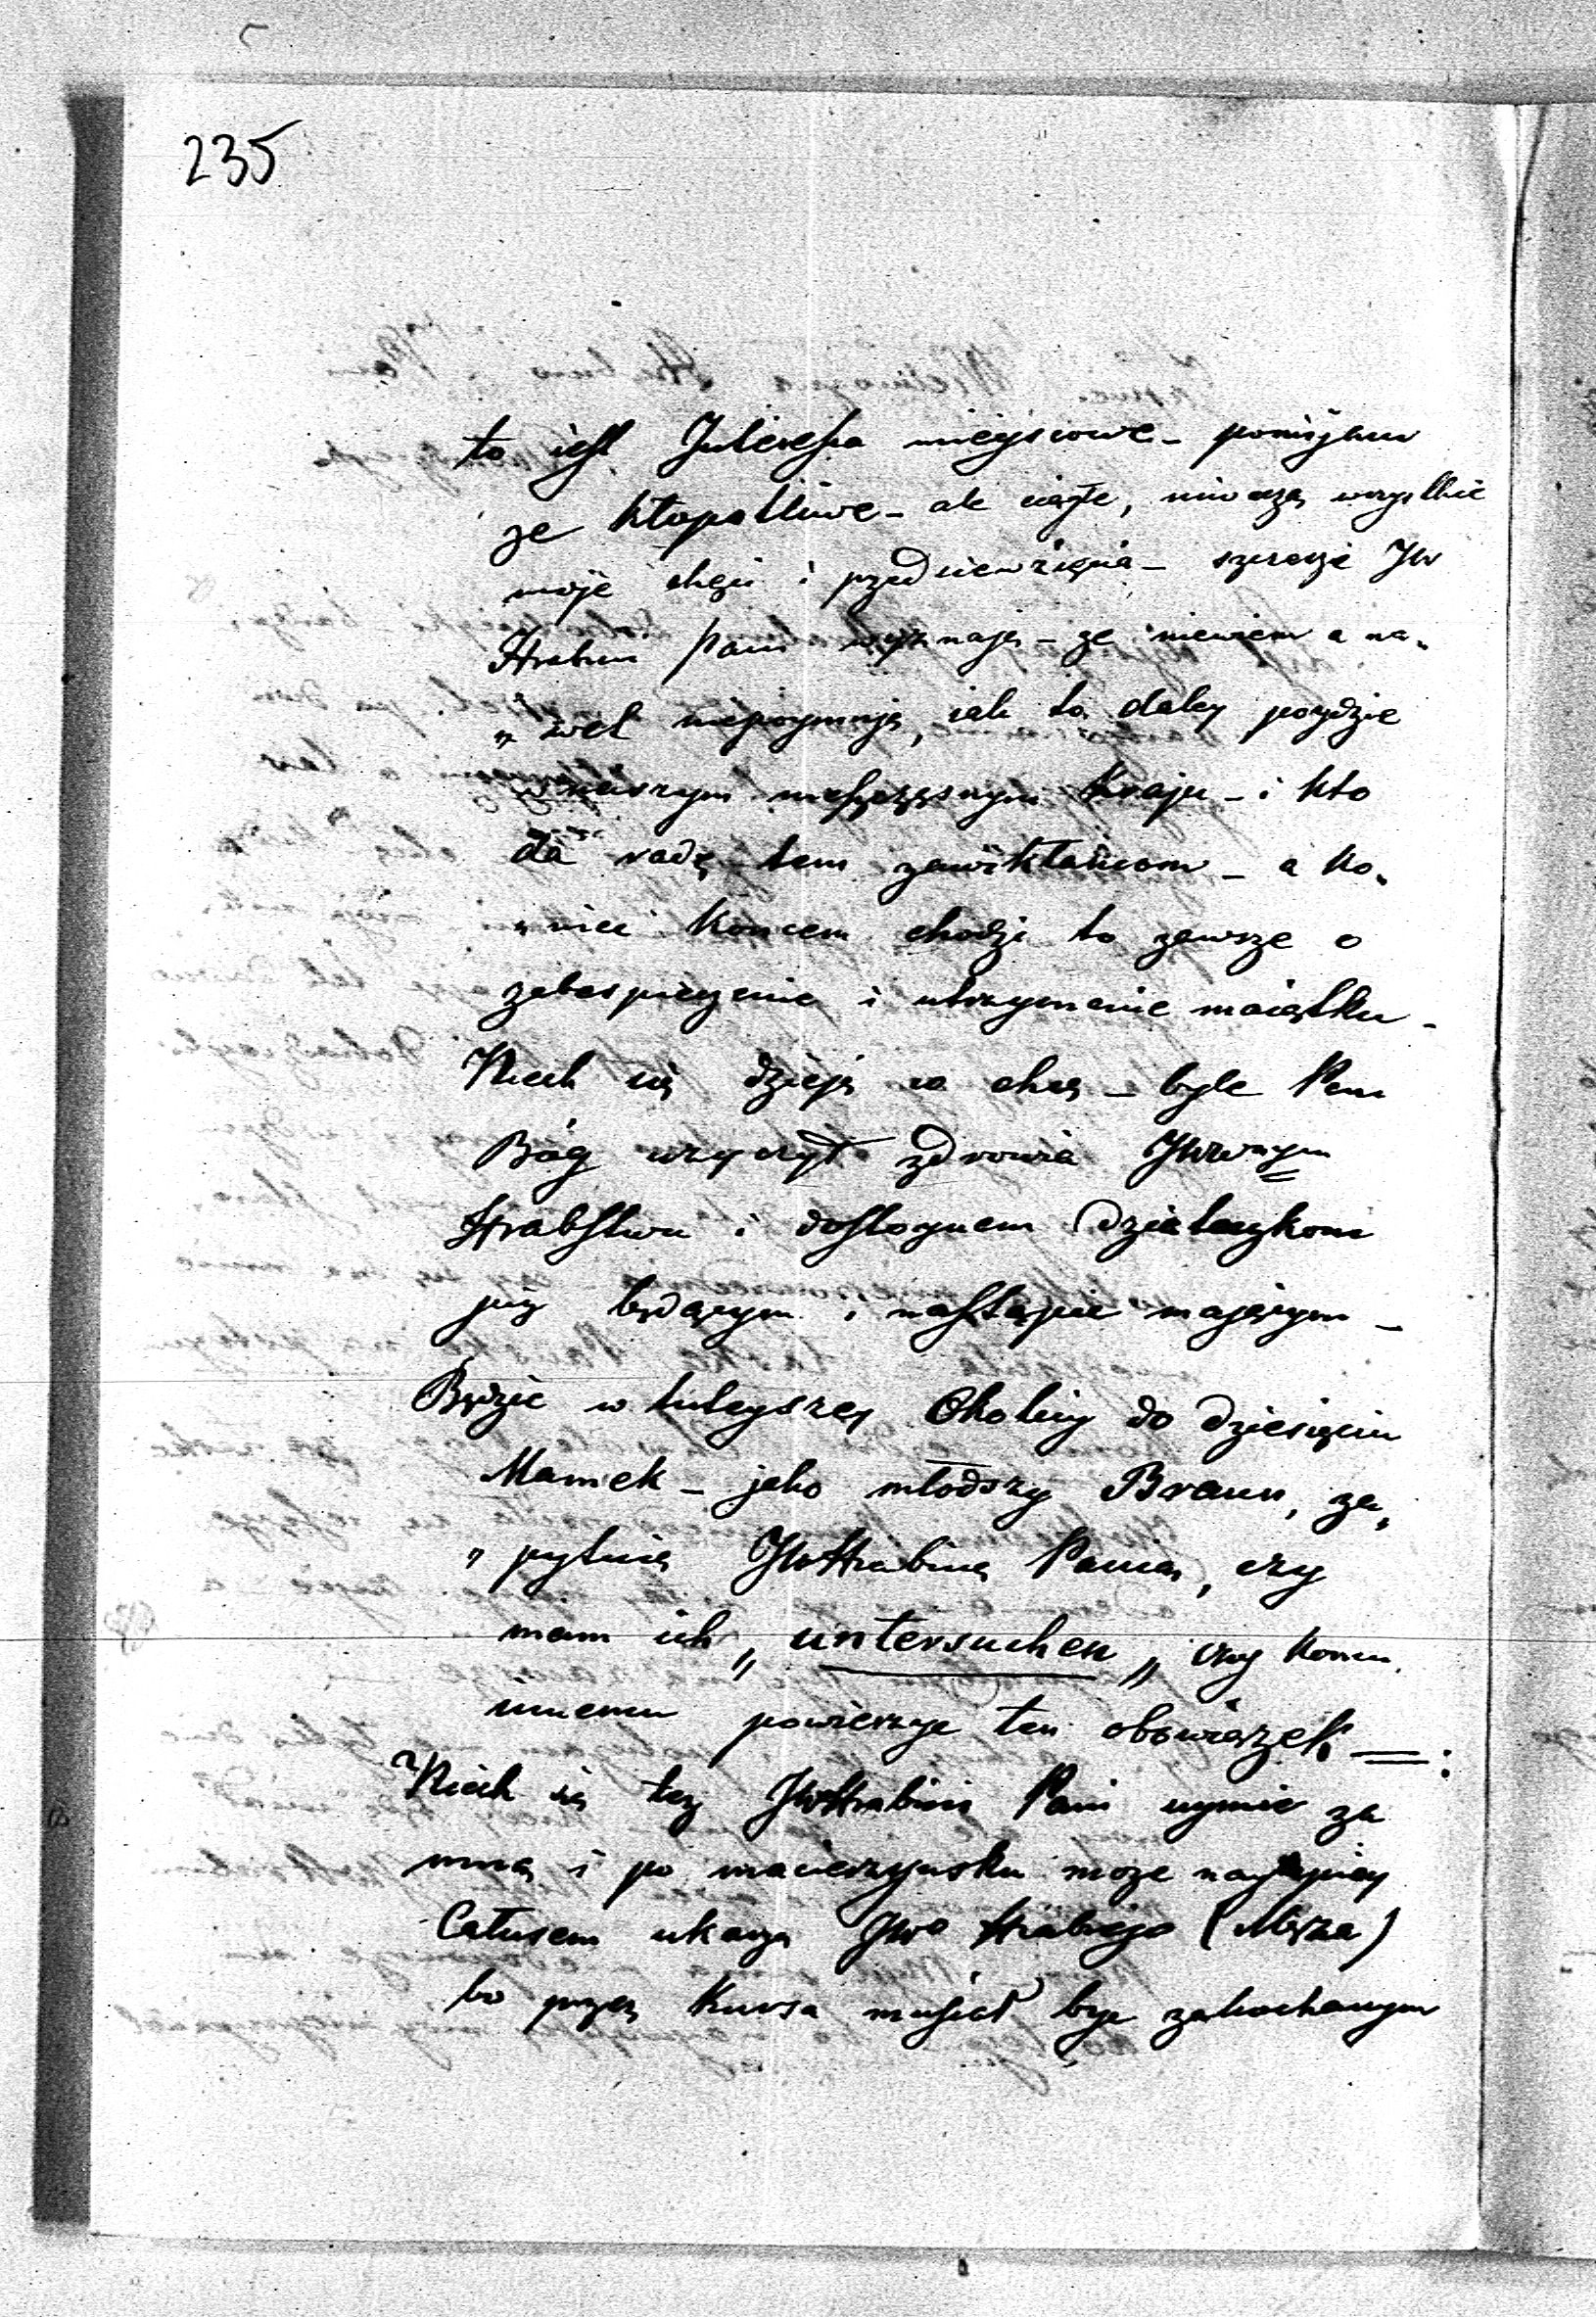 235
to jest Interessa mieyscowe – pomijam
ze kłopotliwe – ale ciągłe, niweczą wszystkie
moje chęci i przedsiewzięcia – szczerze JW
Hrabini Pani wyznaję – ze niewiem a na„
„wet niepoymuję, iak to daley poydzie
w naszym nieszczęsnym kraju – i kto
da radę tem zawikłaniom – a ko„
„niec końcem chodzi to zawsze o
zabespieczenie i utrzymanie maiątku –
Niech się dzieją co chcą – byle Pan
Bóg uzyczył zdrowia JWWnym
Hrabstwu i dostoynem Dziateczkom
już będącym i nastąpić mającym –
Będzie w tuteyszey Okolicy do dziesięciu
Mamek – jako młodszy Braun, za„
„pytuię JWHrabinę Panią, czy
mam ich „untersuchen„ czy komu
innemu powierzyc ten obowiązek =:
Niech się tez JWHrabini Pani uymie za
mną i po macierzyńsku moze naylepiey
Całusem ukarze JWo Hrabiego (Męza)
bo przez Kursa musiał byc zakochanym